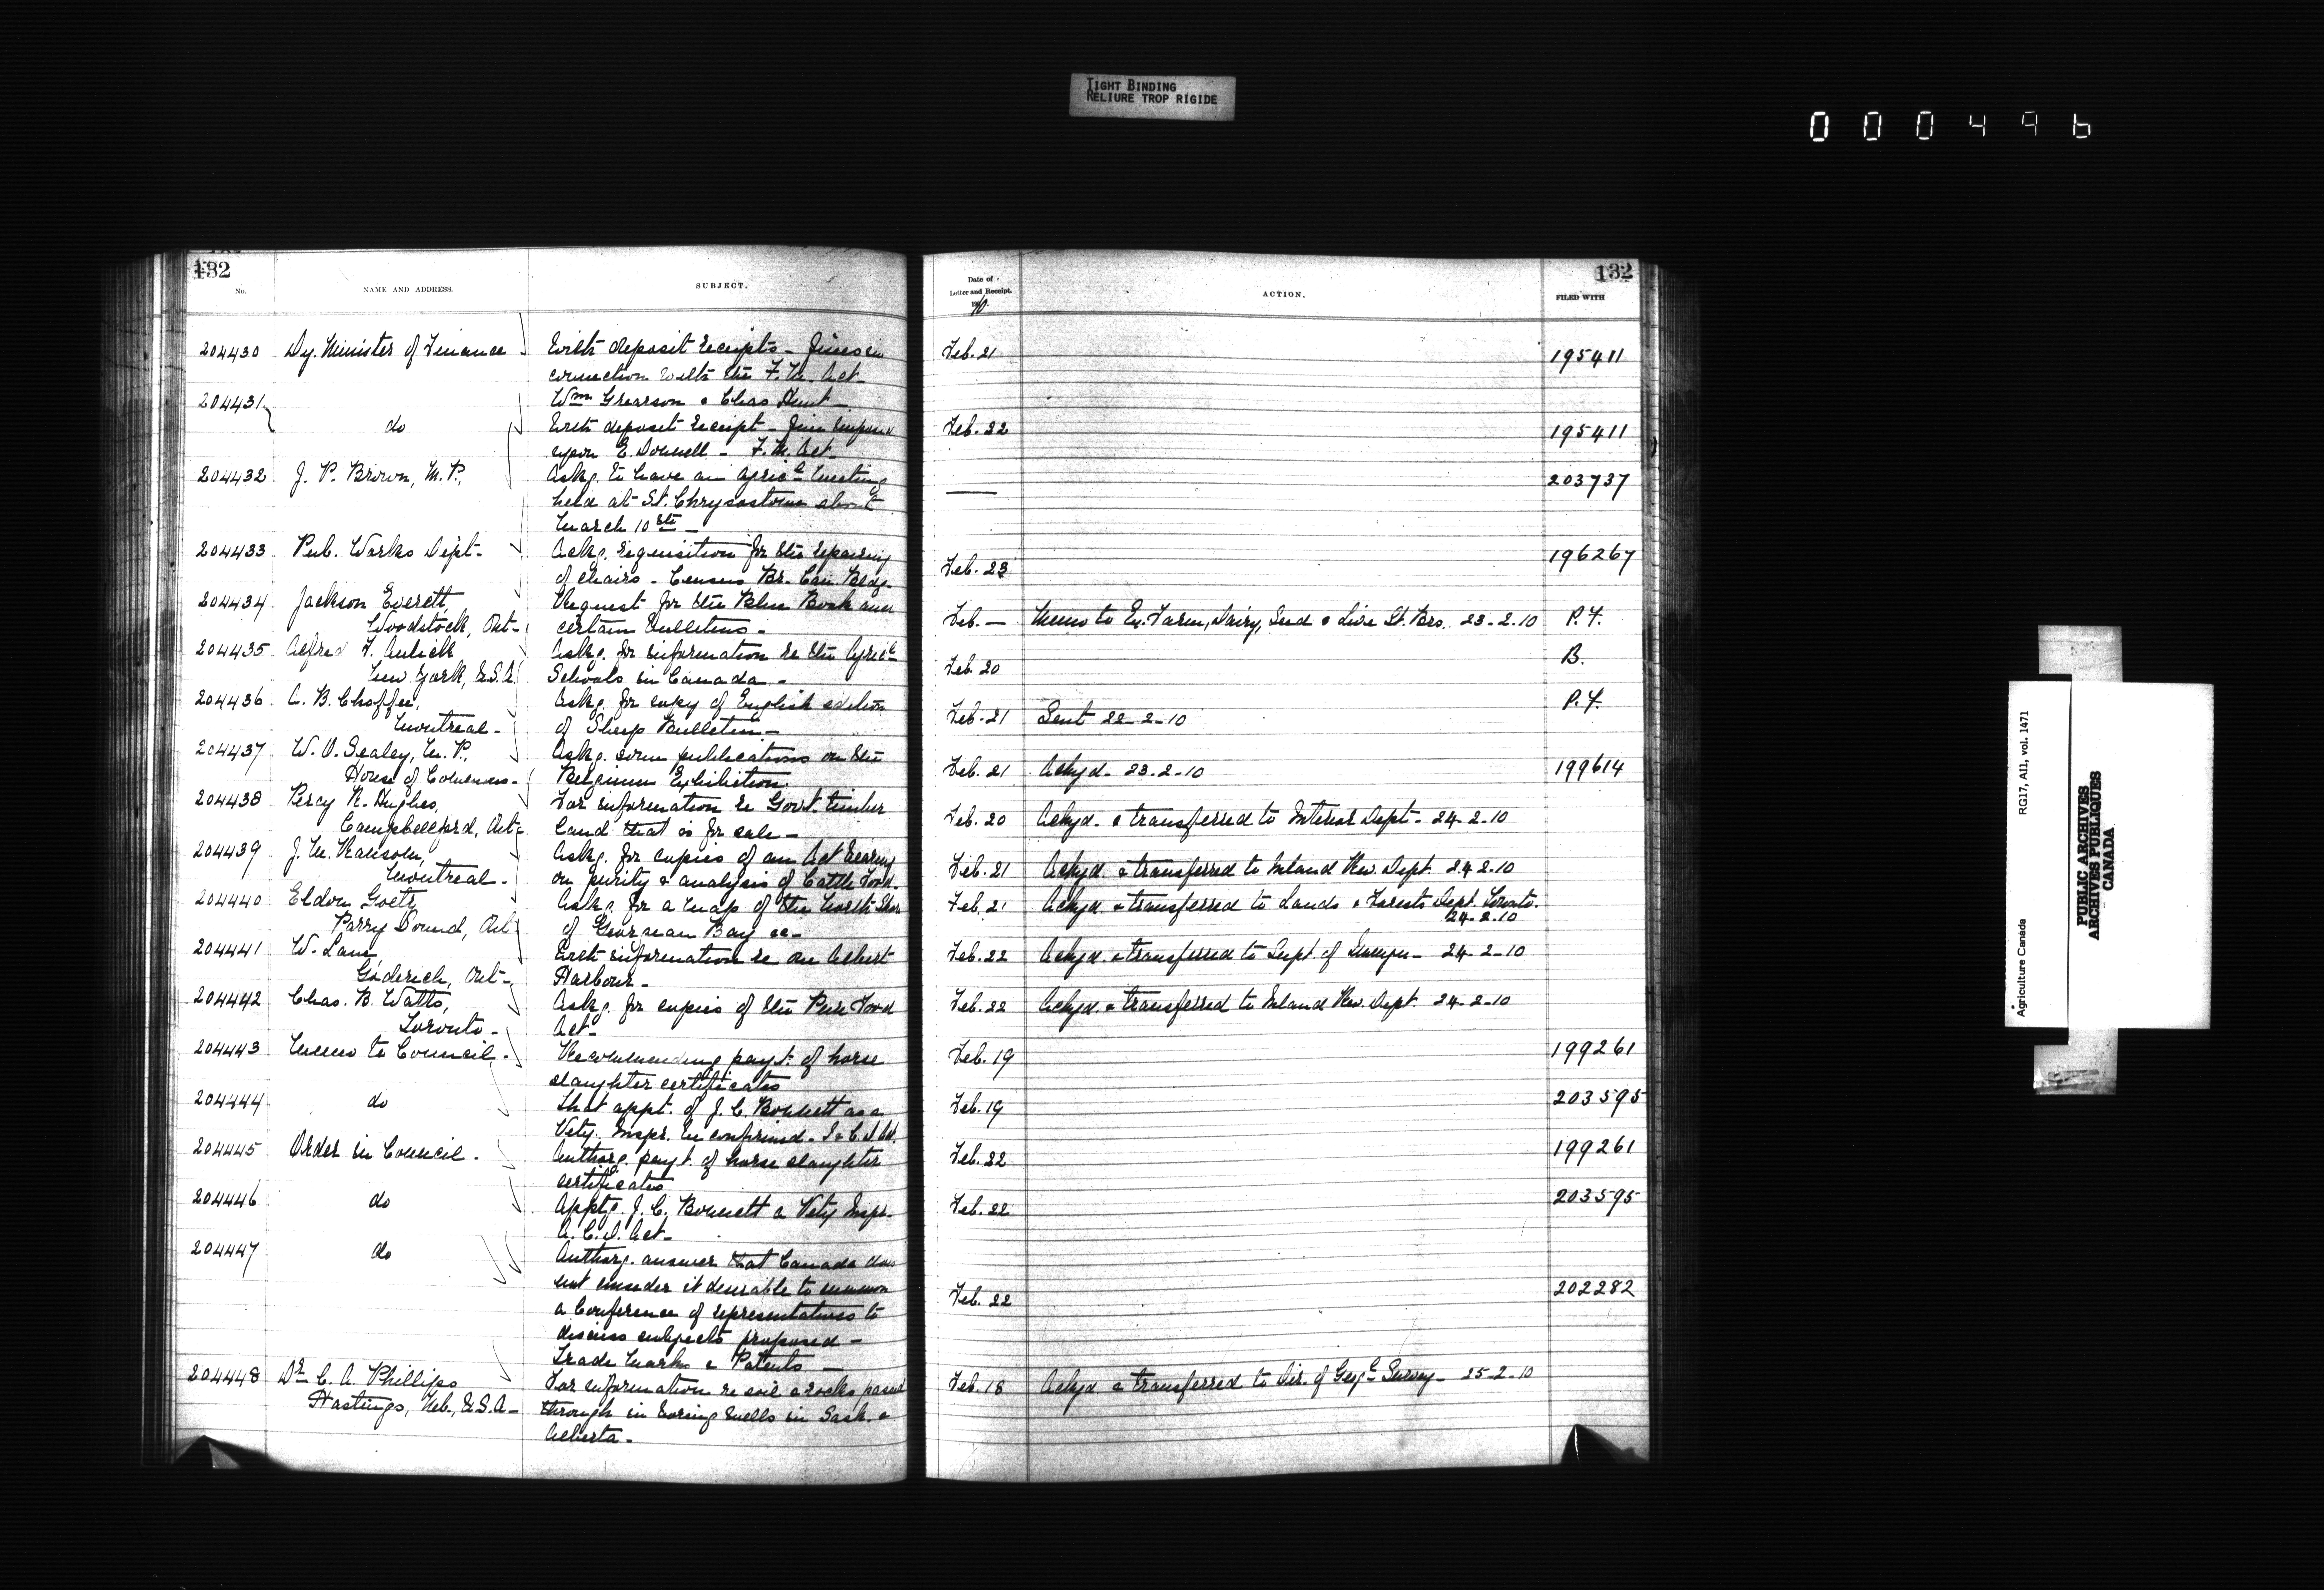 TIGHT BINDING
RELIURE TROP RIGIDE
000496
132
No.
NAME AND ADDRESS.
SUBJECT.
Date of
Letter and Receipt.
ACTION.
FILED WITH
132
204430 Dy. Minister of Finance With deposit receipts - Fines in Feb. 21 195411
connection with the F. M. Act.
204431 Wm Grearson & Chas Hunt -
do With deposit receipt - fine imposed Feb. 22 195411
upon E. Donnell - F. M. Act
204432 J. P. Brown, M. P., Askg. to have an agricl meeting — 203737
held at St. Chrysostome about
March 10th -
204433 Pub. Works Dept. Askg. requisition for the repairing 196267
of chairs - Census Br. Can. Bldg. Feb. 23
204434 Jackson Everett, Request for the Blue Book and
Woodstock, Ont. certain bulletins - Feb. — Memo to Ex. Farm, Dairy, Seed & Live St. Brs. 23-2-10 P. F.
204435 Alfred F. Askg. for information re the Agricl B.
New York, U.S.A. Schools in Canada - Feb. 20
204436 A. B. Choffee, Askg. for copy of English edition P. F.
Montreal - of Sheep Bulletin - Feb. 21 Sent 22-2-10
204437 W. O. Sealey, M. P., Askg. some publications on the
House of Commons - Belgium Exhibition Feb. 21 Ackgd. 23-2-10 199614
204438 Percy R. Hughes, For information re Govt. timber
Campbellford, Ont. land that is for sale - Feb. 20 Ackgd. & transferred to Interior Dept. 24-2-10
204439 J. M. Askg. for copies of an Act bearing
Montreal - on purity & analysis of Cattle Food. Feb. 21 Ackgd. & transferred to Inland Rev. Dept. 24-2-10
204440 Eldon Goetz, Askg. for a map of the North Shore Feb. 21 Ackgd. & transferred to Lands & Forests Dept. Toronto.
Parry Sound, Ont. of Georgian Bay &c - 24-2-10
204441 W. Lane, With information re an Albert Feb. 22 Ackgd. & transferred to Supt. of 24-2-10
Goderich, Ont. Harbour -
204442 Chas. B. Watts, Askg. for copies of the Pure Food Feb. 22 Ackgd. & transferred to Inland Rev. Dept. 24-2-10
Toronto - Act -
204443 Memo to Council. Recommending payt. of horse Feb. 19 199261
slaughter certificates
204444 do that appt. of J. C. Bonnett as a Feb. 19 203595
Vety. Inspr. be confirmed -
204445 Order in Council. Authorg. payt. of horse slaughter Feb. 22 199261
certificates
204446 do Apptg. J. C. Bonnett a Vety Inspr. Feb. 22 203595
A. C. D. Act -
204447 do Authorg. answer that Canada does
not consider it desirable to summon Feb. 22 202282
a Conference of representatives to
discuss subjects proposed -
Trade Marks & Patents -
204448 Dr. C. A. Phillips For information re soil & rocks passed Feb. 18 Ackgd. & transferred to Dir. of Geol. Survey - 25-2-10
Hastings, Neb., U.S.A. - through in boring wells in Sask. &
Alberta -
Agriculture Canada RG17, AII, vol. 1471
PUBLIC ARCHIVES
ARCHIVES PUBLIQUES
CANADA